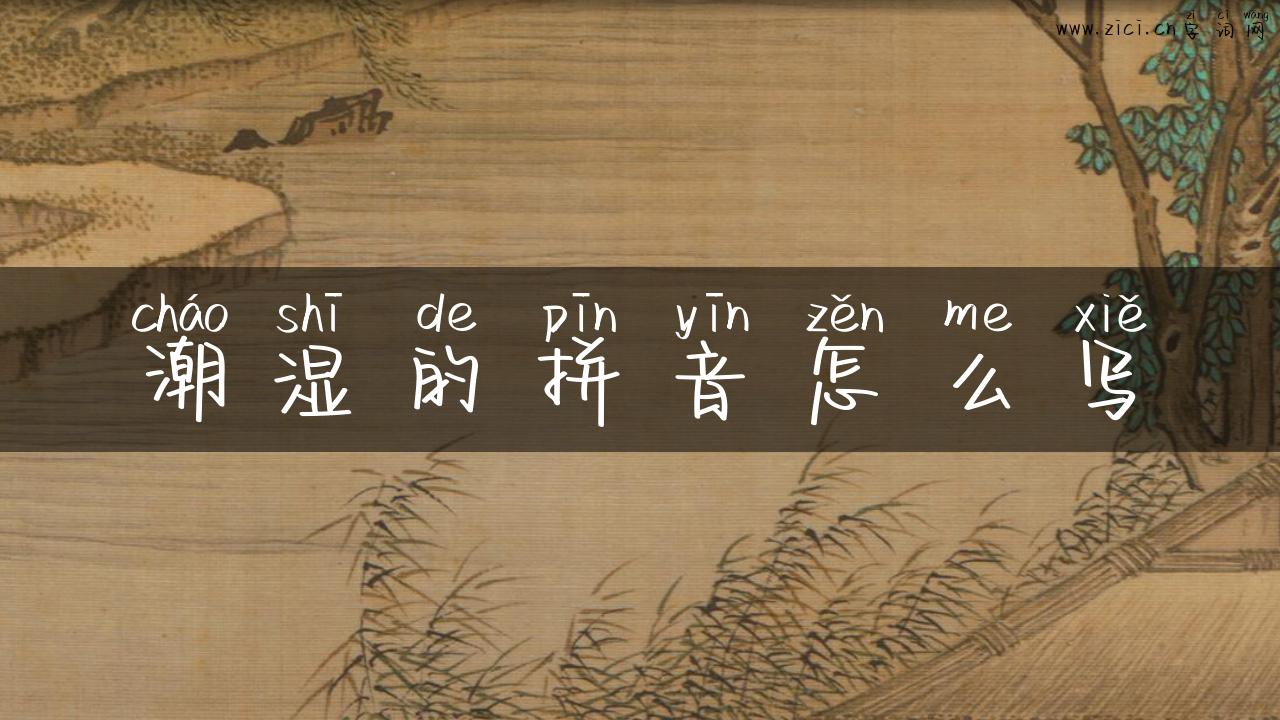 zì cí wǎng
www.zici.cn字词网
cháo shī de pīn yīn zěn me xiě
潮湿的拼音怎么写